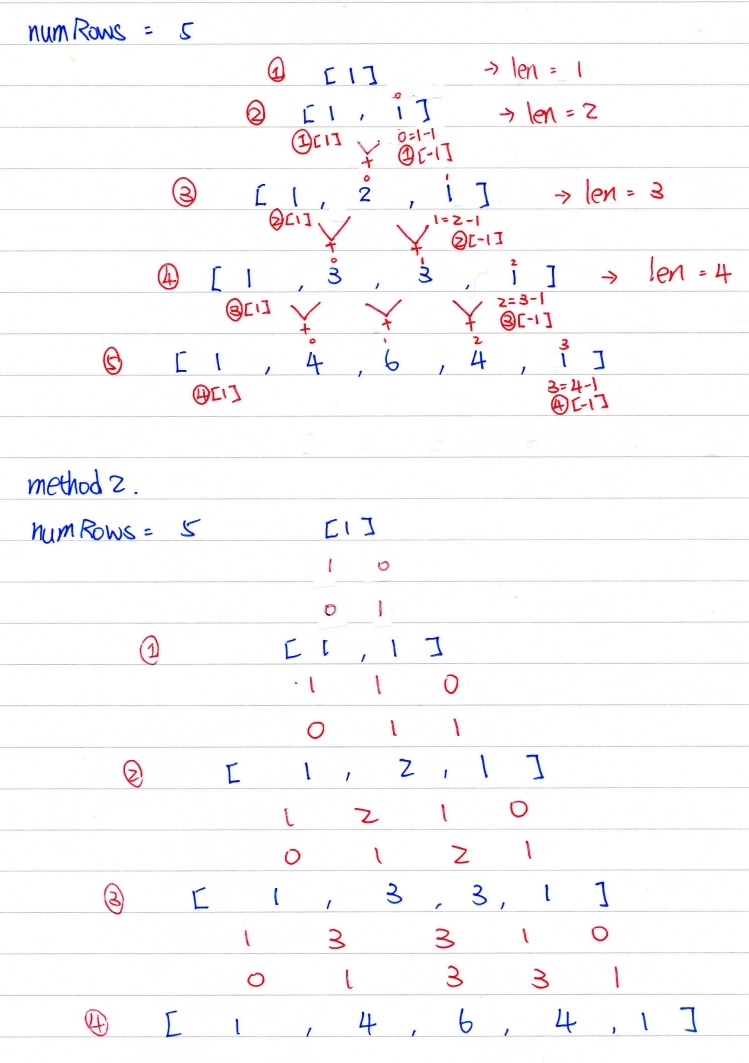 numRows = 5
① [1] → len = 1
0
② [1, 1] → len = 2
①[1] + 0=1-1
①[-1]
0 1
③ [1, 2, 1] → len = 3
②[1] + + 1=2-1
②[-1]
0 1 2
④ [1, 3, 3, 1] → len = 4
③[1] + + + 2=3-1
③[-1]
0 1 2 3
⑤ [1, 4, 6, 4, 1]
④[1] 3=4-1
④[-1]
method 2.
numRows = 5 [1]
1 0
0 1
① [1, 1]
1 1 0
0 1 1
② [1, 2, 1]
1 2 1 0
0 1 2 1
③ [1, 3, 3, 1]
1 3 3 1 0
0 1 3 3 1
④ [1, 4, 6, 4, 1]